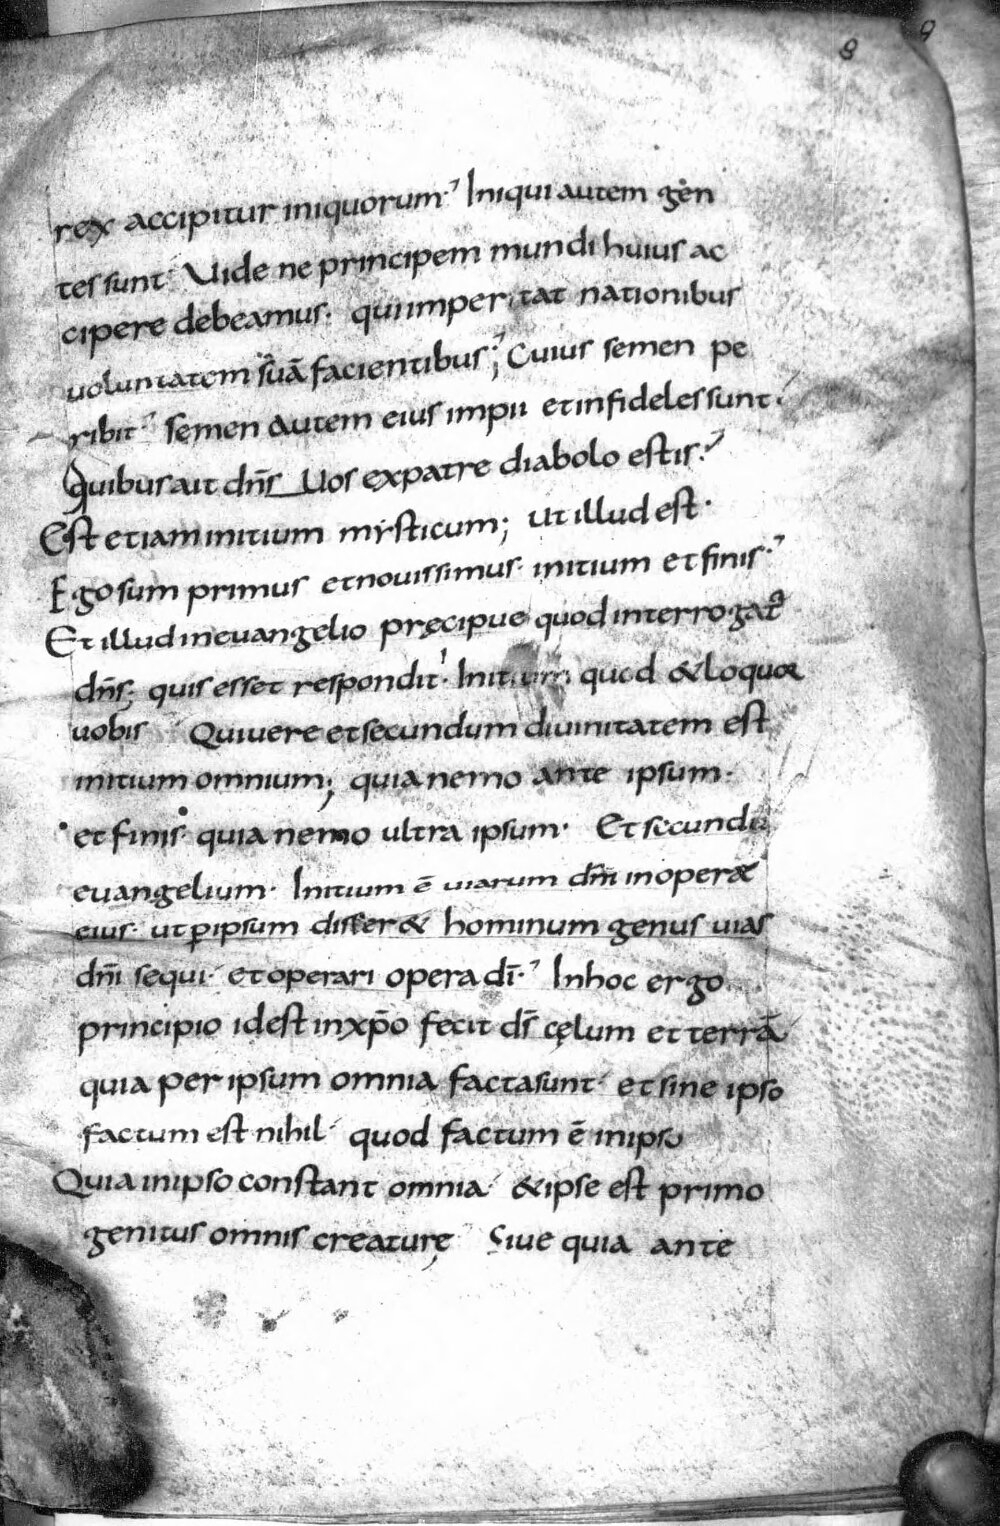 8 9
rex accipitur iniquorum·’ Iniqui autem gen
tes sunt· Uide ne principem mundi huius ac
cipere debeamus· qui imperitat nationibus
uoluntatem suā facientibus; Cuius semen pe
ribit· semen autem eius impii et infideles sunt·
Quibus ait dn̄s Uos ex patre diabolo estis·’
Est etiam initium mysticum; Ut illud est·
Ego sum primus et nouissimus· initium et finis·’
Et illud in euangelio pręcipue quod interrogatꝰ
dn̄s; quis esset respondit· Initium quod & loquor
uobis Qui uere et secundum diuinitatem est
initium omnium; quia nemo ante ipsum·
et finis· quia nemo ultra ipsum· Et secundū
euangelium· Initium ē uiarum dn̄i in opera
eius· ut ꝑ ipsum differ& hominum genus uias
dn̄i sequi· et operari opera dī·’ In hoc ergo
principio id est in xp̄o fecit ds̄ cęlum et terrā
quia per ipsum omnia facta sunt· et sine ipso
factum est nihil· quod factum ē in ipso
Quia in ipso constant omnia· & ipse est primo
genitus omnis creaturę Siue quia ante